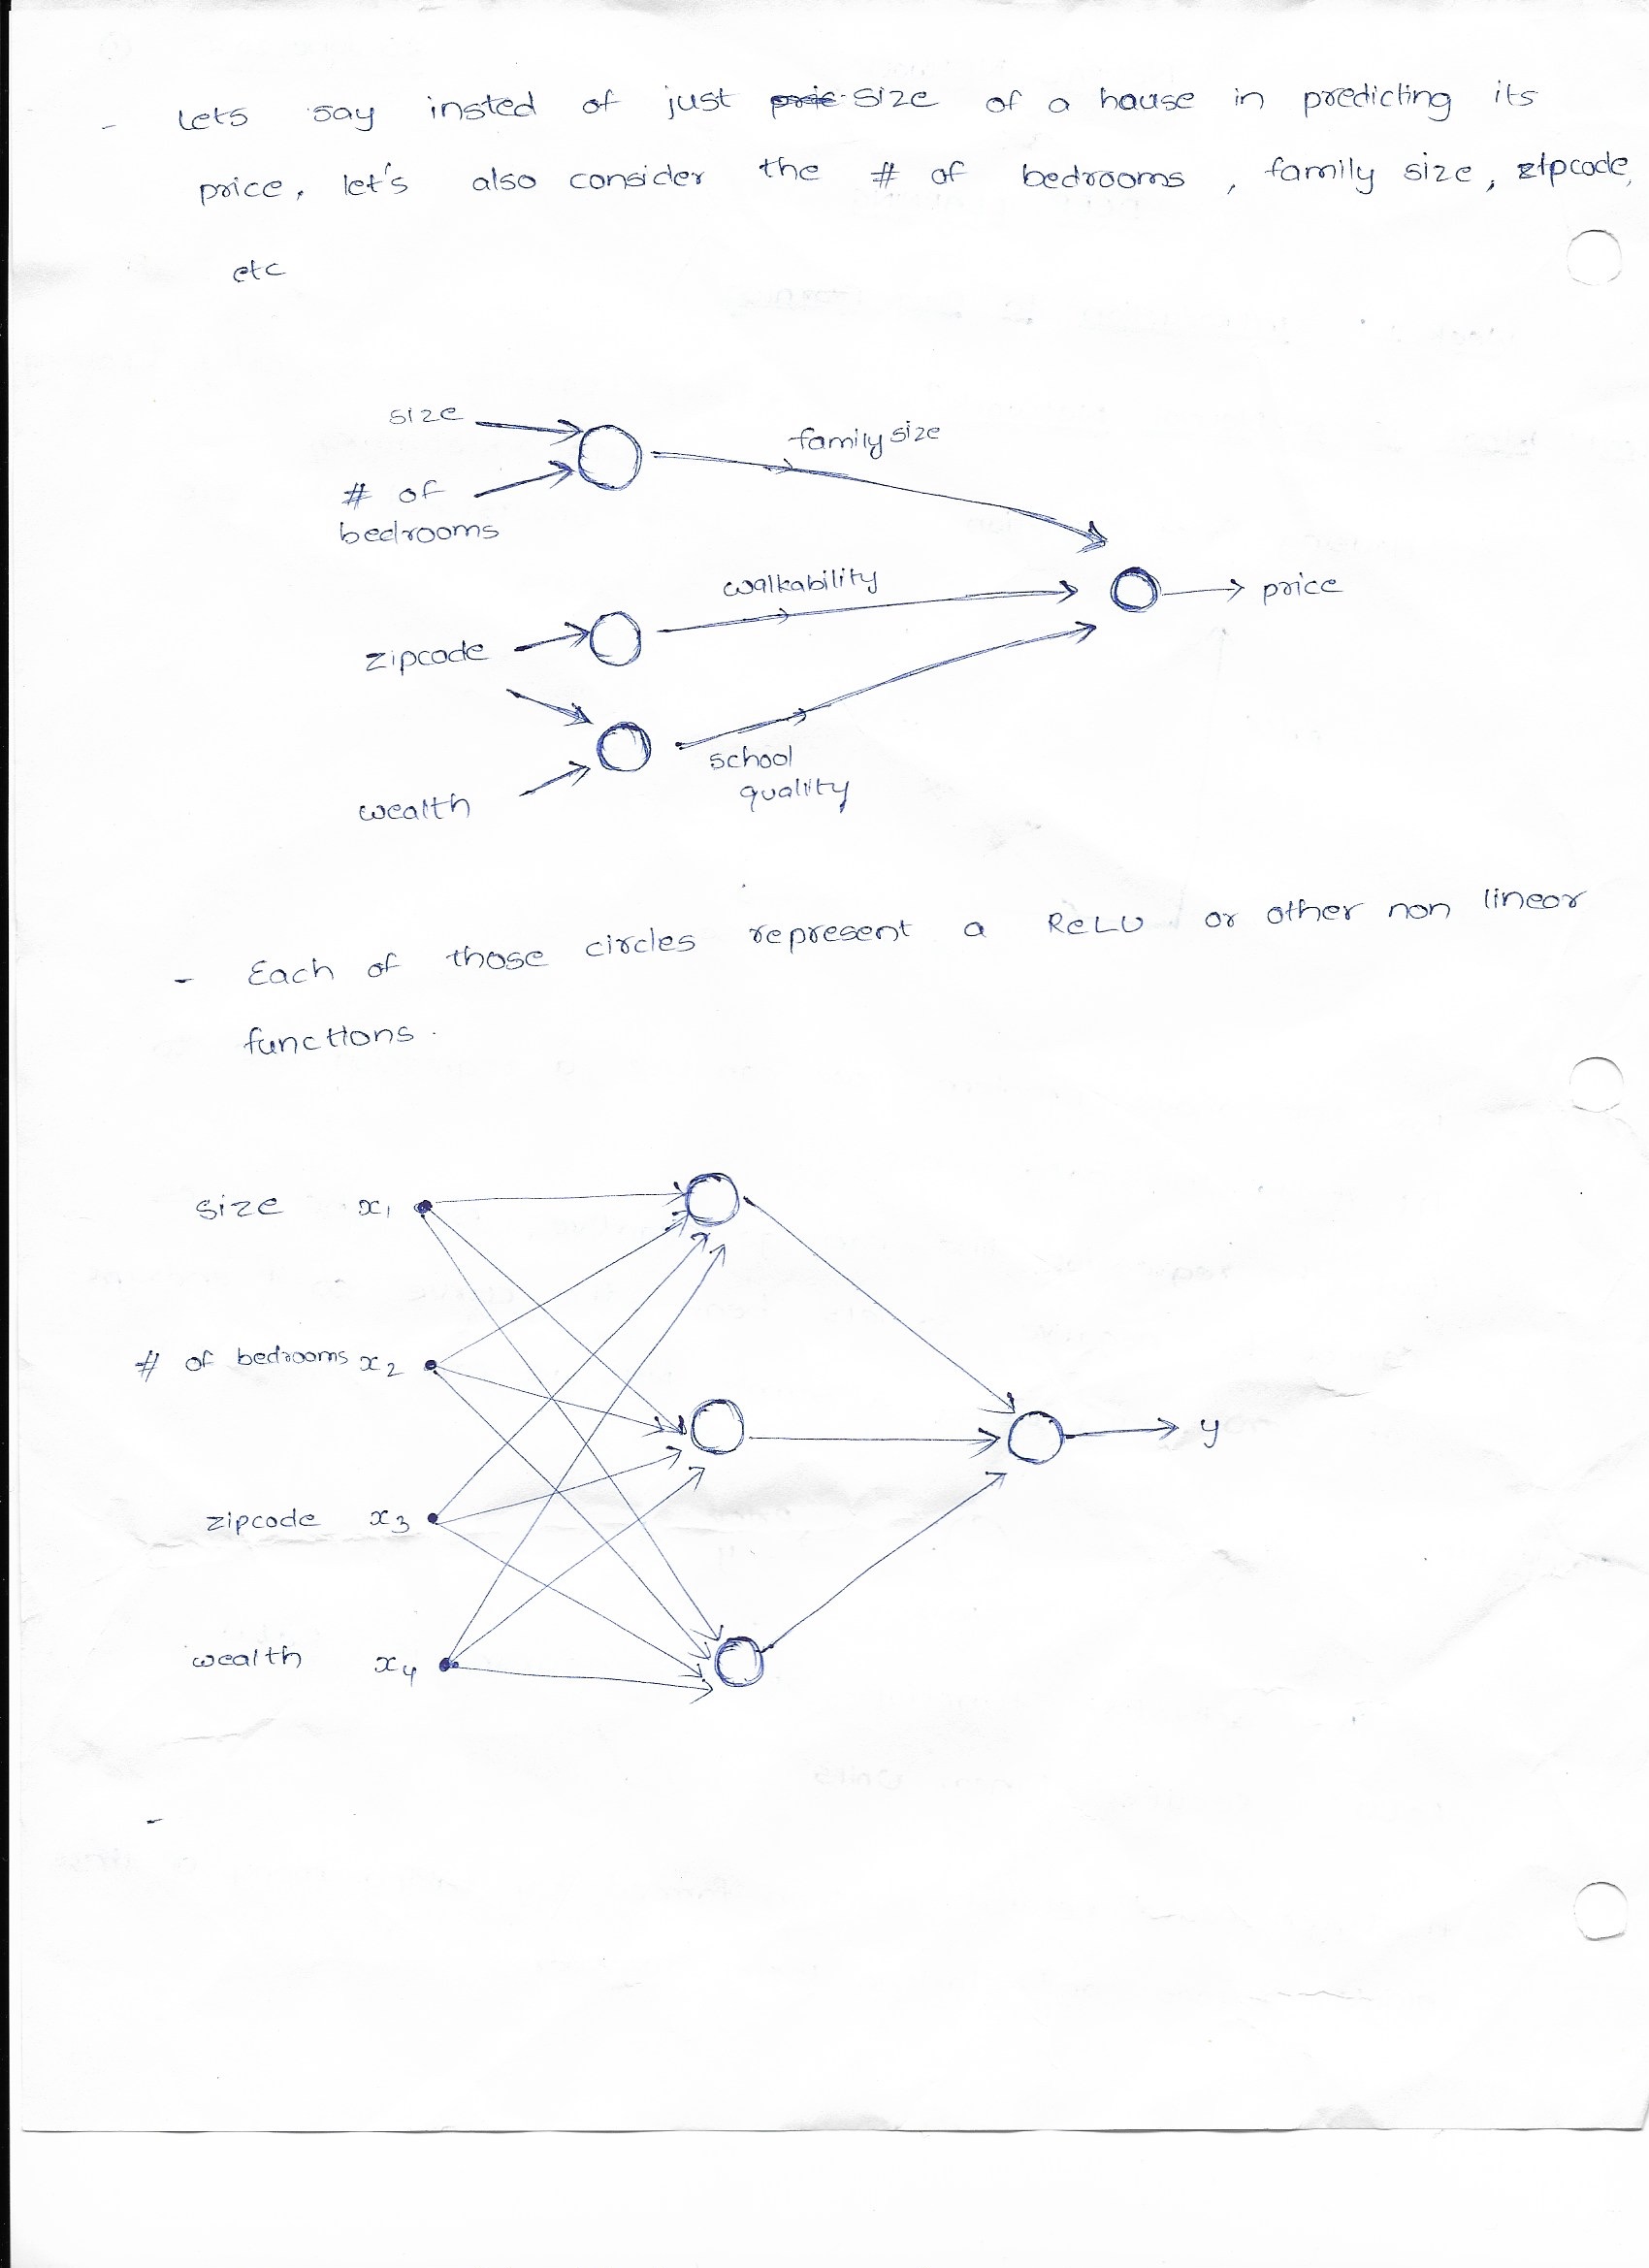 - Lets say insted of just size of a hause in predicting its
price, let's also consider the # of bedrooms, family size, zipcode,
etc
size
family size
# of
bedrooms
walkability
price
zipcode
school
quality
wealth
- Each of those circles represent a ReLU or other non linear
functions.
size x1
# of bedrooms x2
y
zipcode x3
wealth x4
-